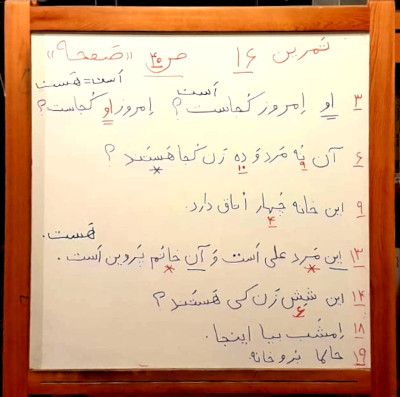 تمرین ۱۶ ص ۴۰ «صَفحه»
اَست = هَست
اَست
۳ او اِمروز کُجاست؟ اِمروز او کُجاست؟
۶ آن نُه مَرد وَ دَه زَن کُجا هَستَند؟
۹ ۱۰ *
۹ این خانه چَهار اُتاق دارَد.
۴
هَست.
۱۳ این مَرد علی اَست وَ آن خانُم پَروین اَست.
* *
۱۴ این شِش زَن کی هَستَند؟
۶
۱۸ اِمشَب بیا اینجا.
۱۹ حالا بُرو خانه